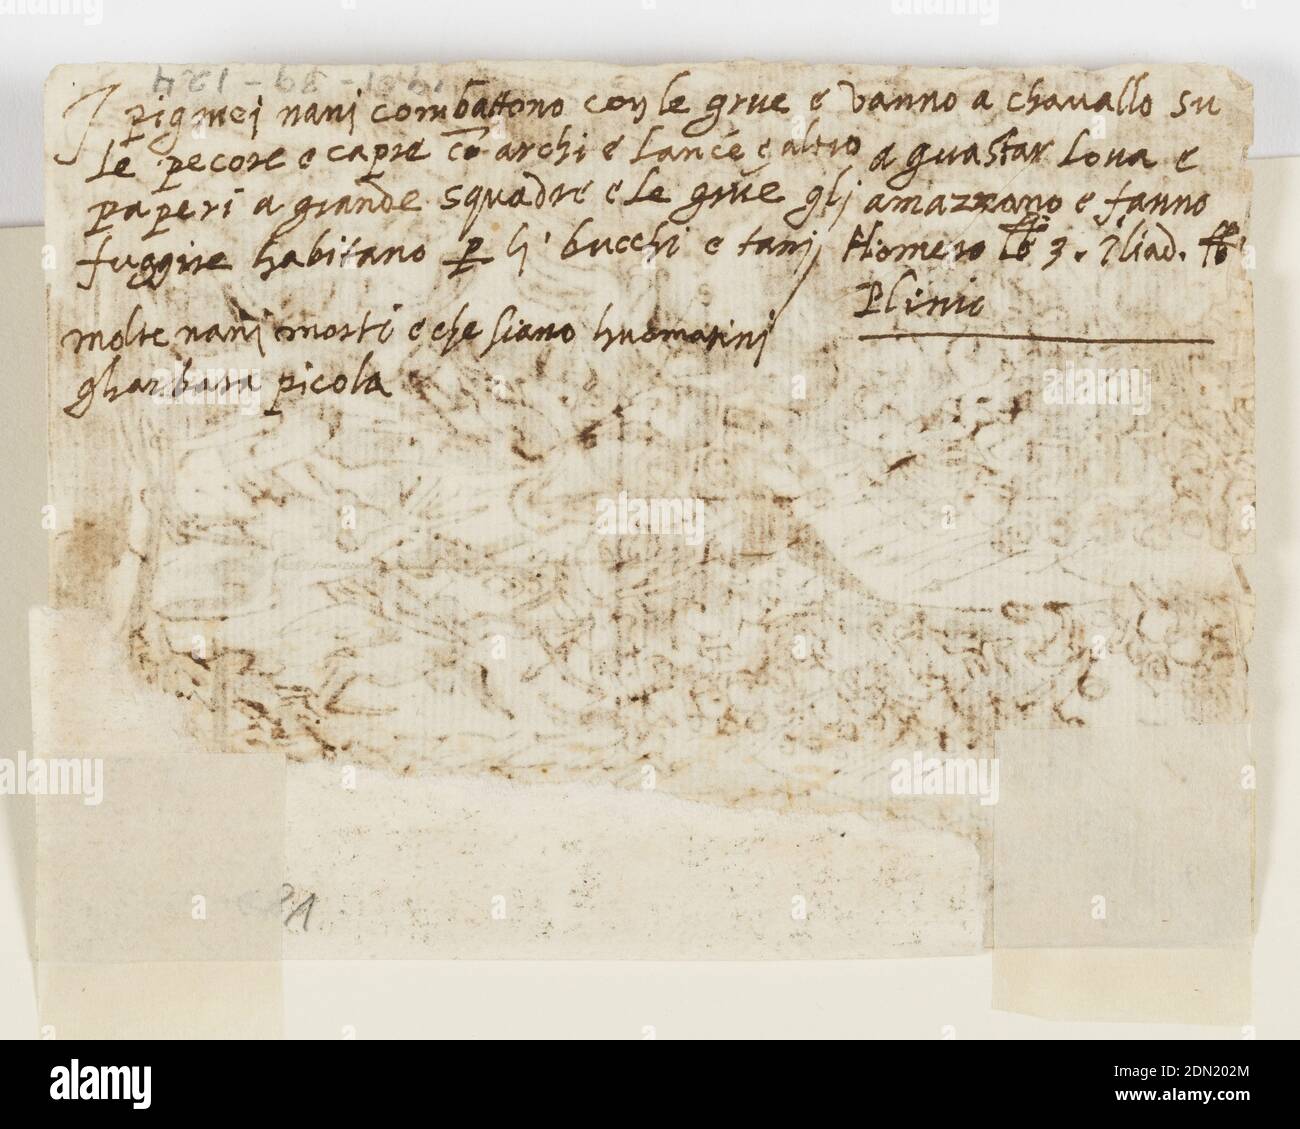 I pigmei nani combattono con le grue e vanno a chauallo su
le pecore e capre cō archi e lance e altro a guastar lova e
paperi a grande squadre e le grue gli amazzono e fanno
fuggire habitano p li bucchi e tanj Homero 3. Iliad.
Plinio
molte nanj morti e che siano huomatinj
gharbata picola
alamy
alamy
Image ID: 2DN202M
www.alamy.com